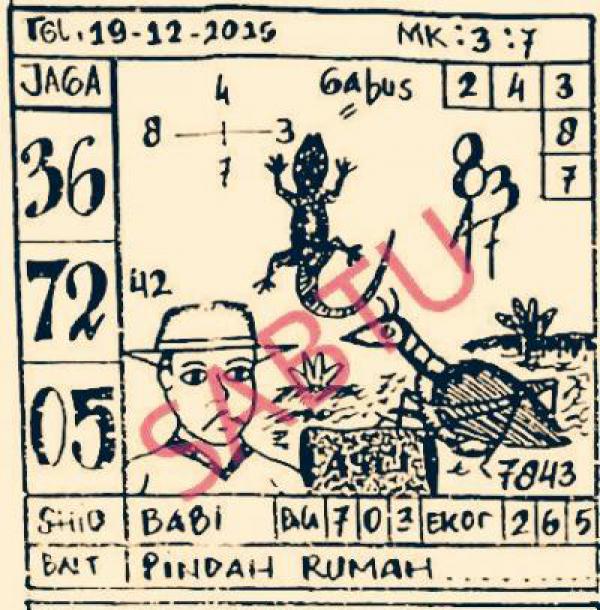 TGL. 19-12-2015 MK : 3 : 7
JAGA
4
Gabus
2 4 3
8 3
8
7
7
36
8
3
47
SABTU
72
42
05
7843
SHIO BABI 7 0 3 EKOr 2 6 5
BNT PINDAH RUMAH ..........